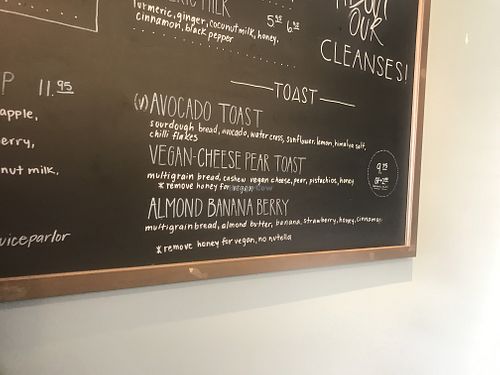 MILK
turmeric, ginger, coconut milk, honey,
cinnamon, black pepper
ABOUT
OUR
CLEANSES!
P 11.95
apple,
erry,
nut milk,
uiceparlor
TOAST
(v) AVOCADO TOAST
sourdough bread, avocado, water cress, sunflower, lemon, himalya salt,
chilli flakes
VEGAN-CHEESE PEAR TOAST
multigrain bread, cashew vegan cheese, pear, pistachios, honey
*remove honey for vegan
9.75
ALMOND BANANA BERRY
multigrain bread, almond butter, banana, strawberry, honey, cinnamon
*remove honey for vegan, no nutella